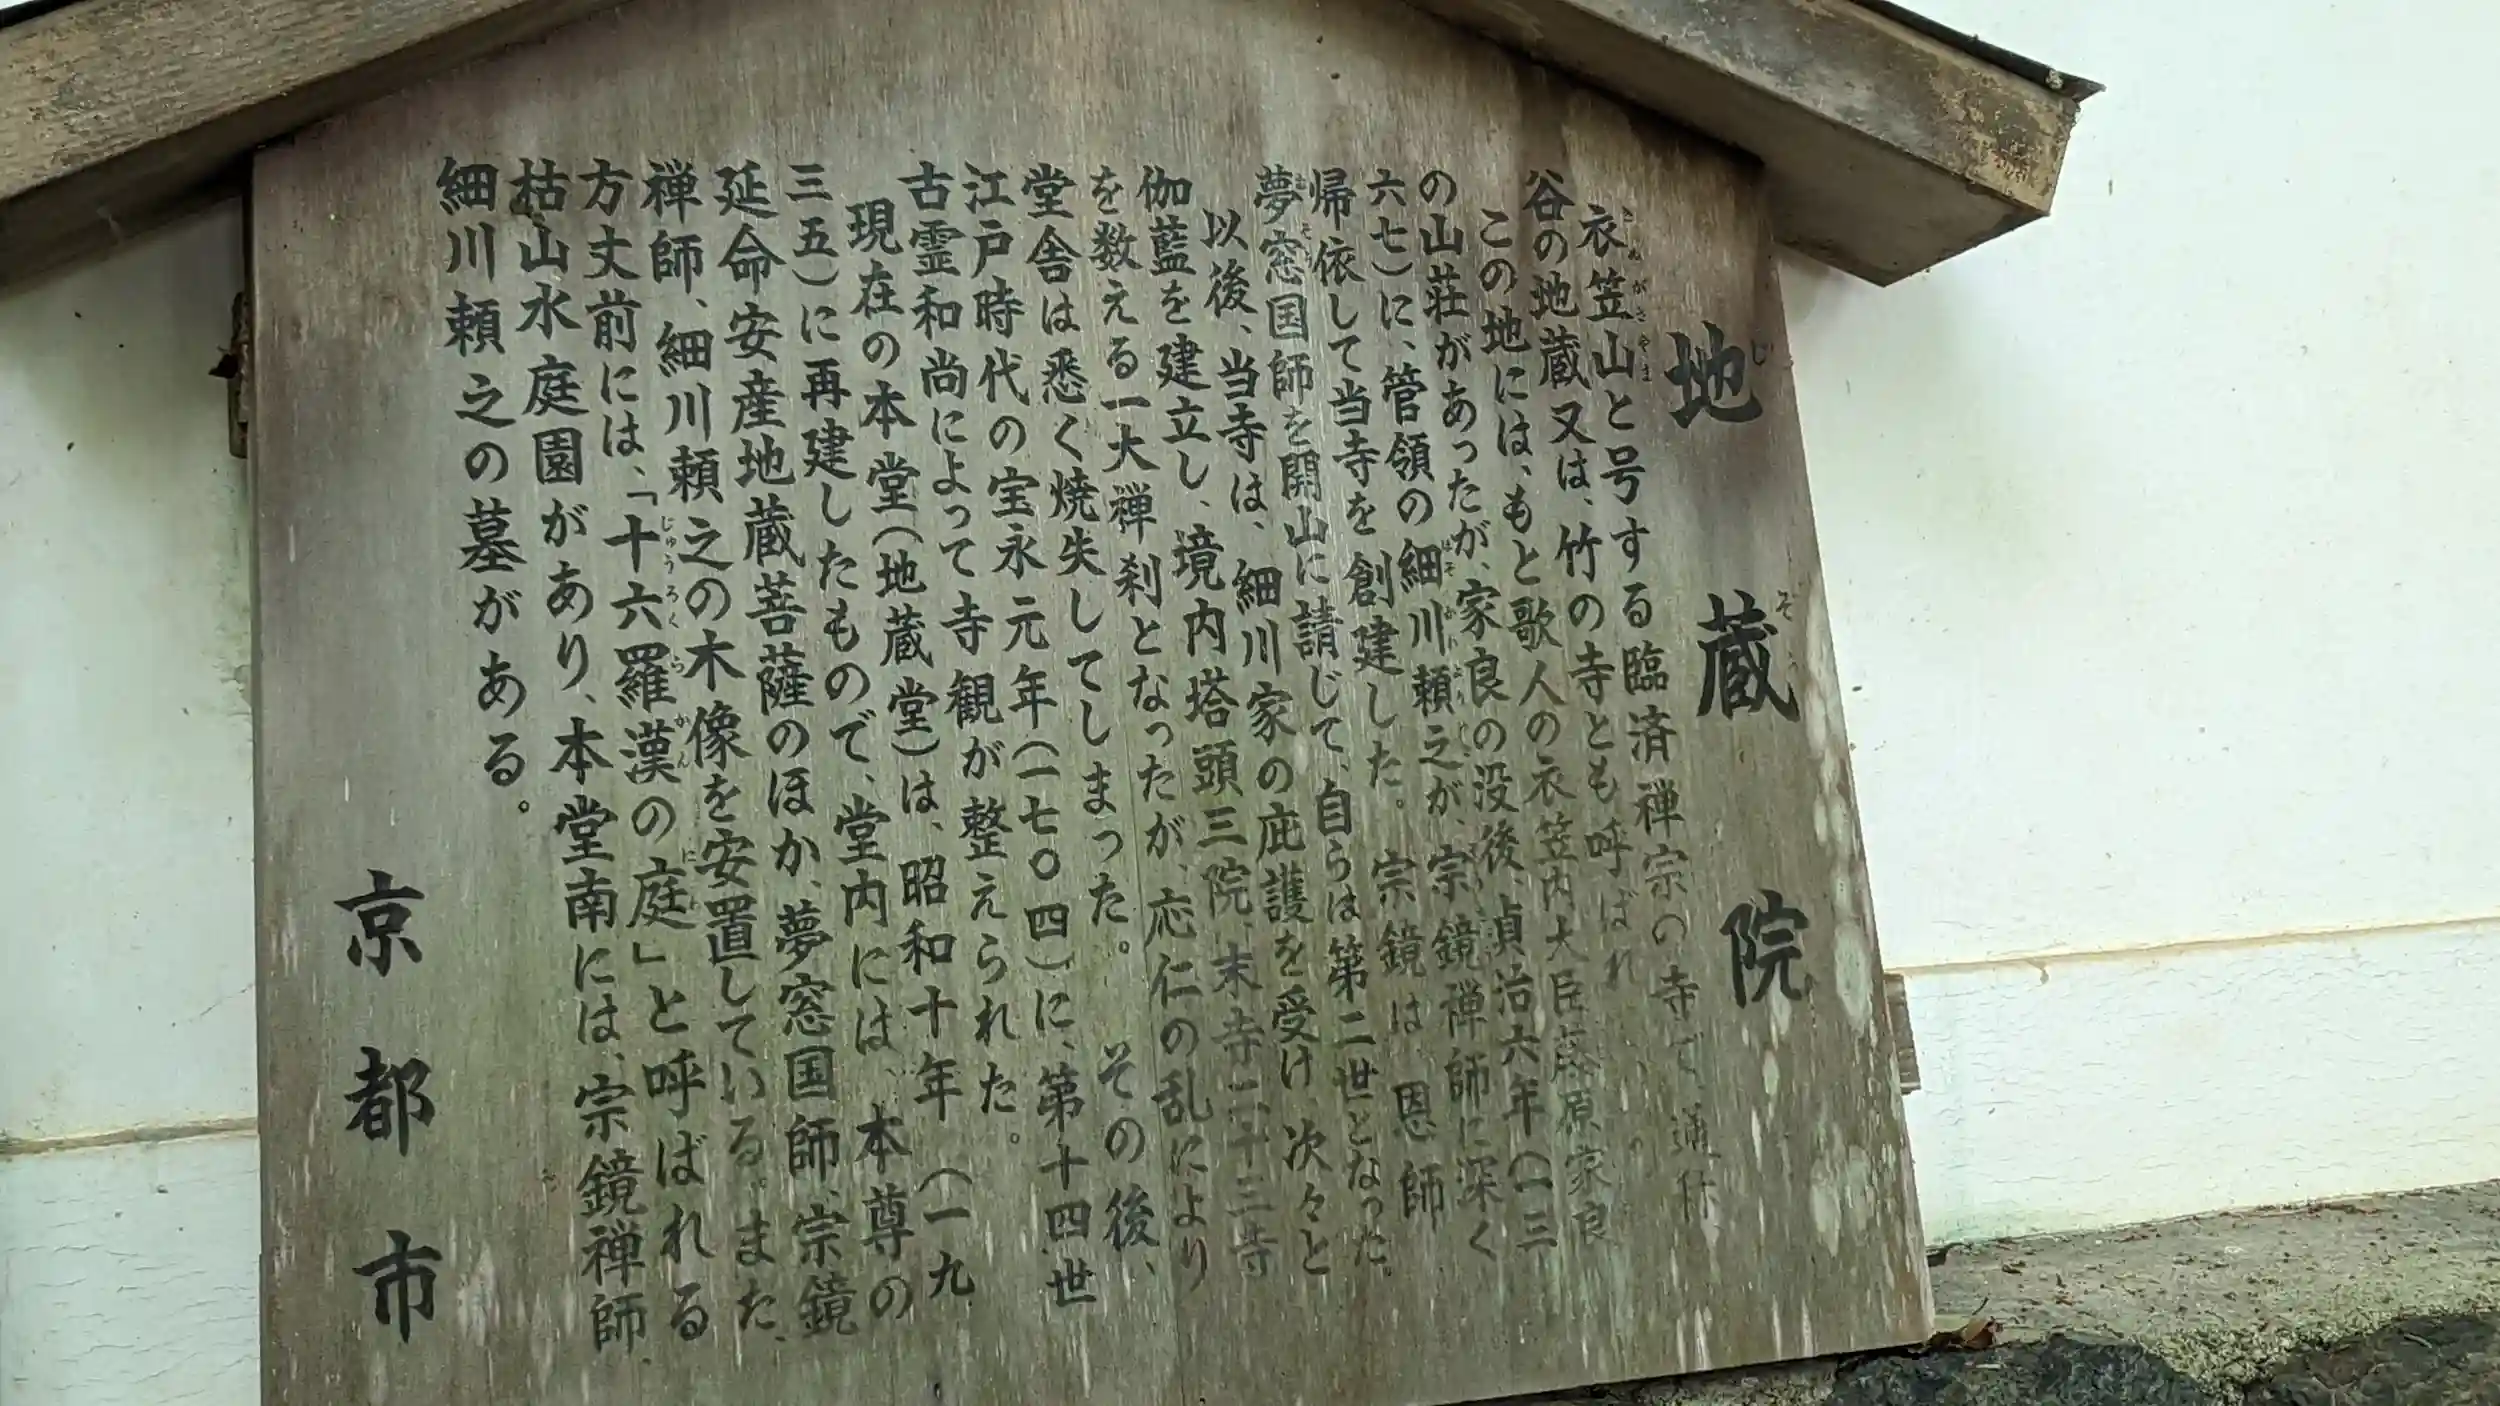 地蔵院
衣笠山と号する臨済禅宗の寺で、通称
谷の地蔵又は、竹の寺とも呼ばれ
この地には、もと歌人の衣笠内大臣藤原家良
の山荘があったが、家良の没後、貞治六年(一三
六七)に、管領の細川頼之が、宗鏡禅師に深く
帰依して当寺を創建した。宗鏡は、恩師
夢窓国師を開山に請じて、自らは第二世となった。
以後、当寺は、細川家の庇護を受け、次々と
伽藍を建立し、境内塔頭三院、末寺二十三寺
を数える一大禅刹となったが、応仁の乱により
堂舎は悉く焼失してしまった。その後、
江戸時代の宝永元年(一七〇四)に、第十四世
古霊和尚によって寺観が整えられた。
現在の本堂(地蔵堂)は、昭和十年(一九
三五)に再建したもので、堂内には、本尊の
延命安産地蔵菩薩のほか、夢窓国師、宗鏡
禅師、細川頼之の木像を安置している。また、
方丈前には、「十六羅漢の庭」と呼ばれる
枯山水庭園があり、本堂南には、宗鏡禅師、
細川頼之の墓がある。
京都市